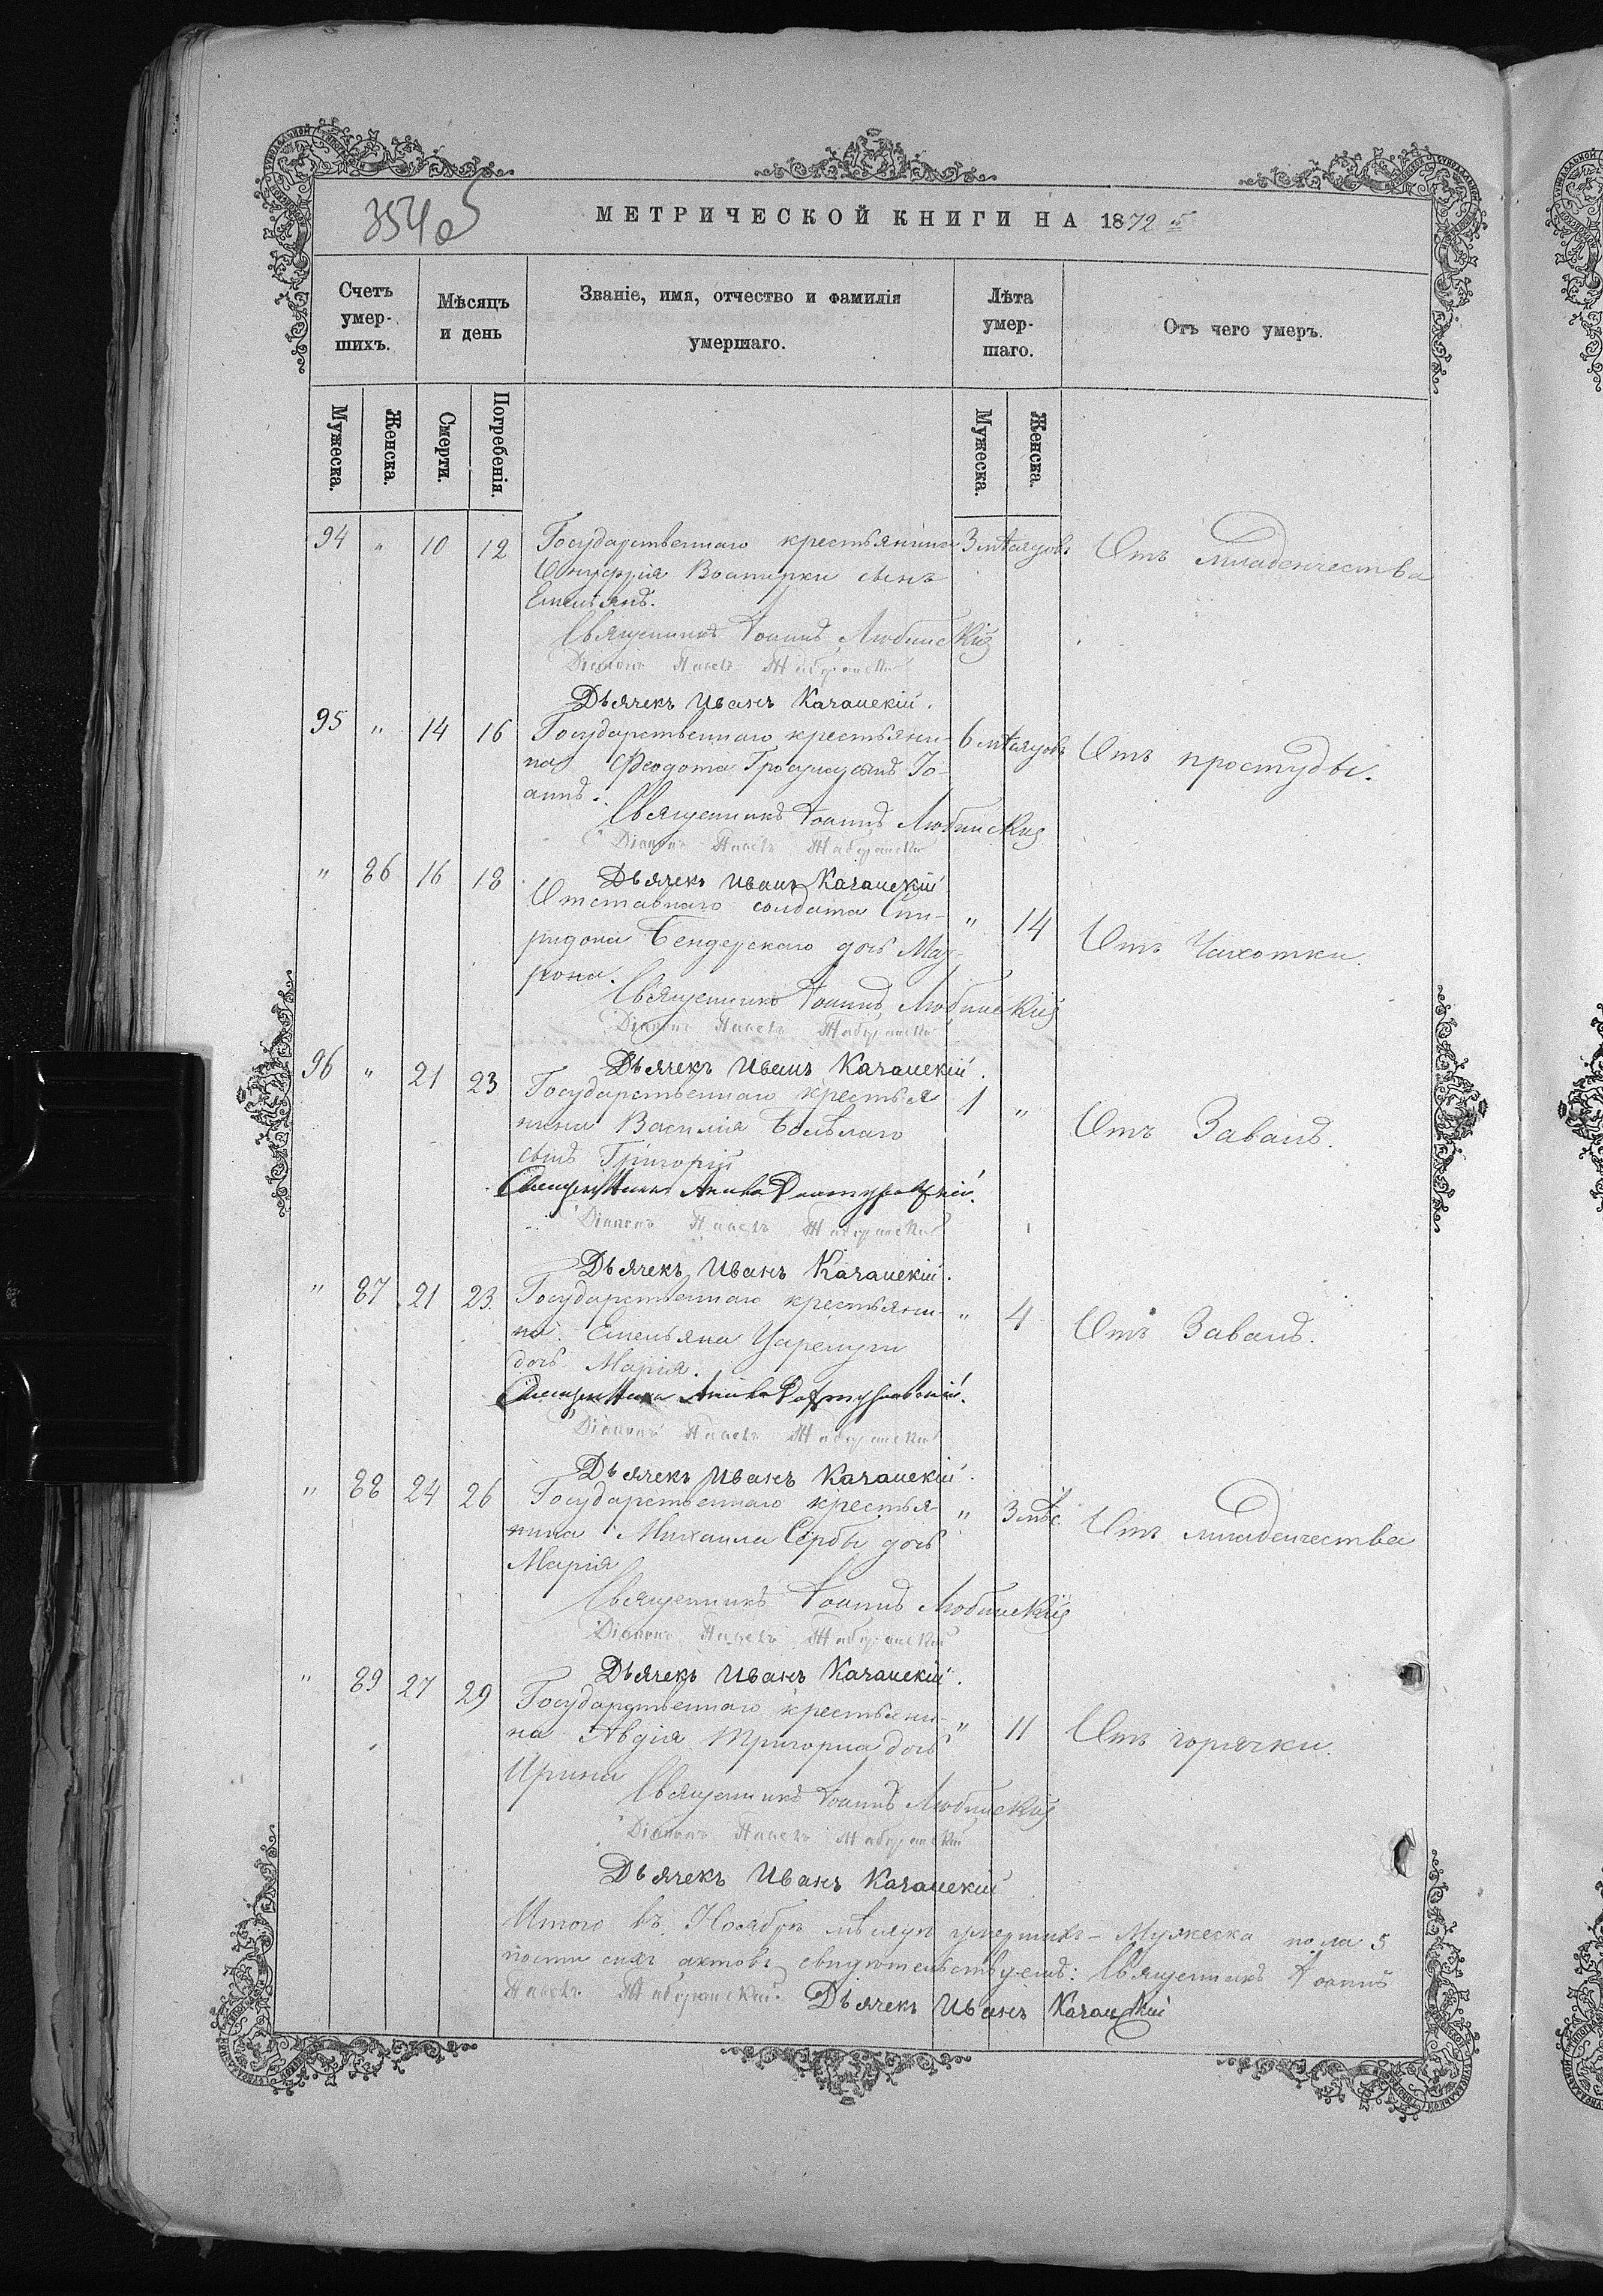 354об
МЕТРИЧЕСКОЙ КНИГИ НА 1872 5
Счетъ умер-шихъ.
Мѣсяцъ и день
Званіе, имя, отчество и фамилія умершаго.
Лѣта умер-шаго.
Отъ чего умеръ.
Мужеска.
Женска.
Смерти.
Погребенія.
Мужеска.
Женска.
94 " 10 12 Государственнаго крестьянина 3 мѣсяцовъ Отъ младенчества
Онуфрія сынъ
Емеліянъ.
Священникъ Іоаннъ Любинскій
Діаконъ Павелъ
Дьячекъ Иванъ Качанскій.
95 " 14 16 Государственнаго крестьяни- 6 мѣсяцовъ Отъ простуды.
на Феодота сынъ Іо-
аннъ.
Священникъ Іоаннъ Любинскій
Діаконъ Павелъ
Дьячекъ Иванъ Качанскій
" 86 16 18 Отставнаго солдата Спи- " 14 Отъ Чахотки.
ридона Бендерскаго дочь Мат-
рона.
Священникъ Іоаннъ Любинскій
Діаконъ Павелъ
Дьячекъ Иванъ Качанскій.
96 " 21 23 Государственнаго крестья 1 " Отъ Завалъ.
нина Василія
сынъ Григорій
Діаконъ Павелъ
Дьячекъ Иванъ Качанскій.
" 87 21 23. Государственнаго крестьяни- " 4 Отъ Завалъ.
на Емельяна
дочь Марія.
Діаконъ Павелъ
Дьячекъ Иванъ Качанскій.
" 88 24 26 Государственнаго крестья " 3 мѣс. Отъ младенчества
нина Михаила Сербы дочь
Марія
Священникъ Іоаннъ Любинскій
Діаконъ Павелъ
Дьячекъ Иванъ Качанскій.
" 89 27 29 Государственнаго крестьяни- " 11 Отъ горячки.
на Авдія дочь
Ирина
Священникъ Іоаннъ Любинскій
Діаконъ Павелъ
Дьячекъ Иванъ Качанскій
Итого въ Ноябрѣ мѣсяцѣ умершихъ - Мужеска пола 5
ности сихъ актовъ свидѣтельствуемъ: Священникъ Іоаннъ
Павелъ Дьячекъ Иванъ Качанскій